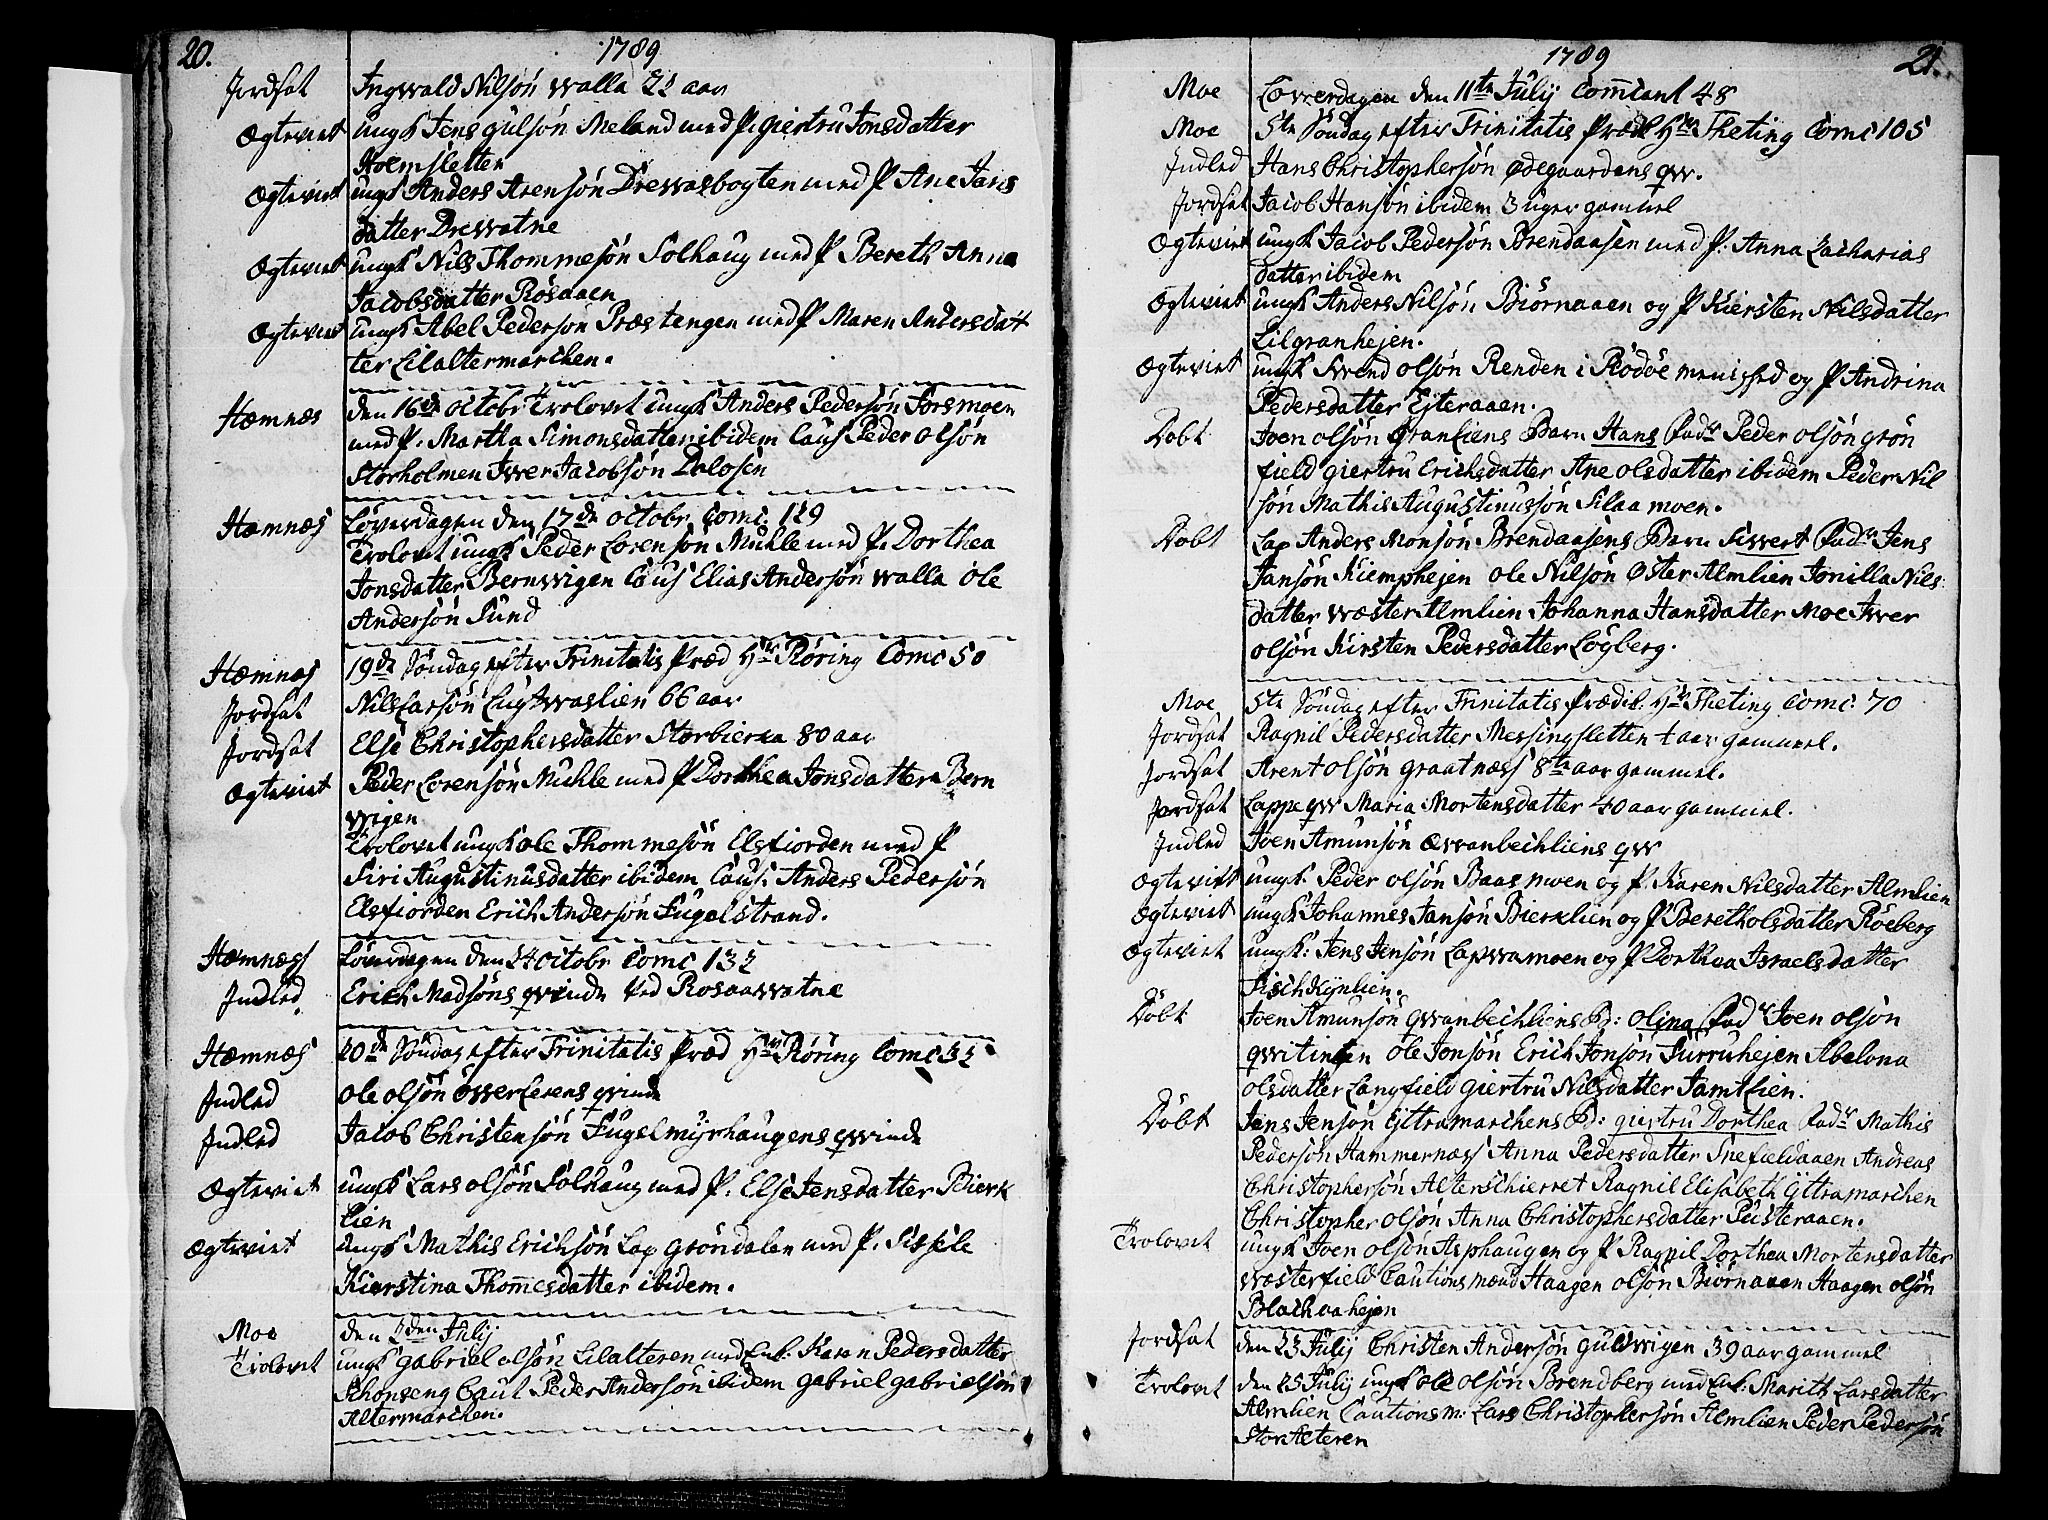 20.
1789
Jordsat Ingwald Nilsøn Walla 22 aar
Ægteviet ungk Jens gulsøn Meland med P. giertru Jonsdatter
Holmsletten
Ægteviet ungk Anders Arensøn Drewasbogten med P Ane Jans
datter Drewatne
Ægteviet ungk Nils Thommesøn Solhaug med P Bereth Anna
Jacobsdatter Røsaaen
Ægteviet ungk Abel Pedersøn Præstengen med P Maren Andersdat
ter Lilaltermarchen.
Hæmnæs den 16de octobr Trolovet ungk Anders Pedersøn Forsmoen
med P. Martha Simonsdatter ibidem Caus Peder olsøn
Storholmen Iwer Jacobsøn Dalosen
Hæmnæs Løverdagen den 17de octobr Comc. 119
Trolovet ungk Peder Lorensøn Muhle med P. Dorthea
Jonsdatter Bernwigen Caus Elias Andersøn Walla ole
Andersøn Sund
Hæmnæs 19de Søndag efter Trinitatis Præd Hr Røring Comc 50
Jordsat Nils Larsøn Lugtwaslien 66 aar
Jordsat Else Christophersdatter Storbierka 80 aar
Ægteviet Peder Lorensøn Muhle med P Dorthea Jonsdatter Bern
wigen
Trolovet ungk ole Thommesøn Elsfiorden med P
Siri Augustinusdatter ibidem Caus. Anders Pedersøn
Elsfiorden Erich Andersøn Fugelstrand.
Hæmnæs Løverdagen den 24 octobr Comc 132
Indled. Erich Madsøns qwinde ved Rosaawatne
Hæmnæs 20de Søndag efter Trinitatis Præd Hr Røring Comc 32
Indled ole olsøn øwerlerens qwinde
Indled Jacob Christensøn Fugelmyrhaugens qwinde
Ægteviet ungk Lars olsøn Solhaug med P. Else Jensdatter Bierk
lien
Ægteviet ungk Mathis Erichsøn Lap grøndalen med P. Sissele
Kierstina Thomesdatter ibidem.
Moe den 2den July
Trolovet ungk gabriel olsøn Lilalteren med Enk. Karen Pedersdatter
Schonseng Caut Peder Andersøn ibidem gabriel gabrielsøn
Altermarchen.
1789
21.
Moe Loverdagen den 11te July Comcant 48
Moe 5te Søndag efter Trinitatis Præd Hr Theting Comc 105
Indled Hans Christophersøn Ødegaardens qw.
Jordsat Jacob Hansøn ibidem 3 uger gammel
Ægteviet ungk Jacob Pedersøn Brendaasen med P. Anna Zacharias
datter ibidem
Ægteviet ungk Anders Nilsøn Biørnaaen og P Kiersten Nilsdatter
Lilgranhejen.
Ægteviet ungk Swend olsøn Renden i Rødøe menished og P Andrina
Pedersdatter Ejteraaen.
Døbt Joen olsøn Granliens Barn Hans Fadr Peder olsøn grøn
field giertru Erichsdatter Ane olsdatter ibidem Peder Nil
søn Mathis Augustinussøn Silaamoen.
Døbt Lap Anders Monsøn Brendaasens Barn Siwert Fadr Jens
Jansøn Kiemphejen ole Nilsøn Øster Almlien Jonilla Nils
datter wæster Almlien Johanna Hansdatter Moe Iwer
olsøn Kirsten Pedersdatter Løgberg.
Moe 5te Søndag efter Trinitatis Prædik. Hr Theting Comc. 70
Jordsat Ragnil Pedersdatter Messingsletten ½ aar gammel.
Jordsat Arent olsøn graatnæss 8te aar gammel.
Jordsat Lappe qw Maria Mortensdatter 40 aar gammel.
Indled Joen Amunsøn Qwanbechliens qw
Ægteviet ungk. Peder olsøn Baasmoen og P. Karen Nilsdatter Almlien
Ægteviet ungk Johannes Jansøn Bierklien og P Bereth olsdatter Røeberg
Ægteviet ungk: Jens Jensøn Lapwamoen og P Dorthea Israelsdatter
Fischkynlien.
Døbt Joen Amunsøn qwanbechliens B: olina Fadr Joen olsøn
qwitinten ole Jonsøn Erich Jonsøn Furruhejen Abelona
olsdatter Langfield giertru Nilsdatter Jamtlien.
Døbt Jens Jensøn Yttramarchens B: giertru Dorthea Fadr Mathis
Pedersøn Hammernæss Anna Pedersdatter Snefieldaaen Andreas
Christophersøn Alterschierret Ragnil Elisabeth Yttramarchen
Christopher olsøn Anna Christophersdatter Plisteraaen.
Trolovet ungk Joen olsøn Asphaugen og P Ragnil Dorthea Mortensdatter
wæsterfield Cautions mænd Haagen olsøn Biørnaaen Haagen olsøn
Blachaahejen
Jordsat den 23 July Christen Andersøn guldwigen 39 aar gammel
Trolovet den 25 July ungk ole olsøn Brendberg med Enk: Marith Larsdatter
Almlien Cautions m: Lars Christophersøn Almlien Peder Pedersøn
Stor Alteren